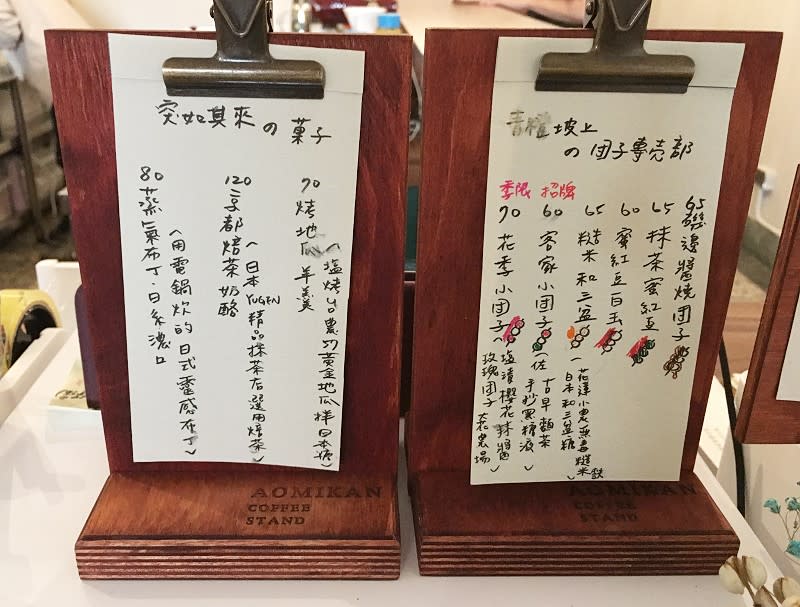 突如其來の菓子
70 烤地瓜羊羹
(塩烤台農57黃金地瓜拌日本糖)
120 京都焙茶奶酪
(日本YUGEN精品抹茶店選用焙茶)
80 蒸氣布丁.日系濃口
(用電鍋炊的日式靈感布丁)
AOMIKAN
COFFEE
STAND
坡上
の団子專売部
65 磯邊醬燒団子
65 抹茶蜜紅豆
60 蜜紅豆白玉
65 糙米和三盆
(日本和三盆糖
花蓮小農無毒糙米)
招牌
60 客家小団子
(佐古早麵茶
手炒黑糖液)
季限
70 花季小団子
(塩漬櫻花抹醬
玫瑰団子 花農場)
AOMIKAN
COFFEE
STAND